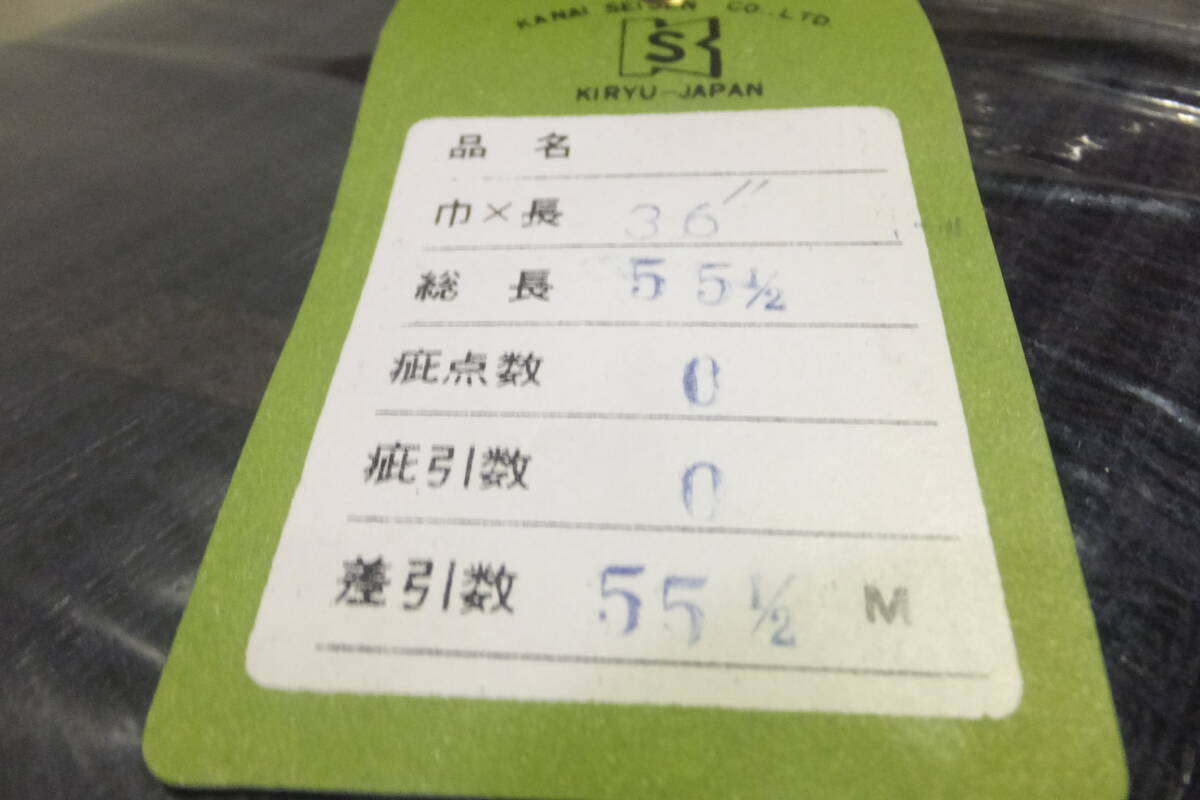 KANAI SEISEN CO.,LTD.
S
KIRYU-JAPAN
品名
巾×長 36″
総長 55½
疵点数 0
疵引数 0
差引数 55½ M